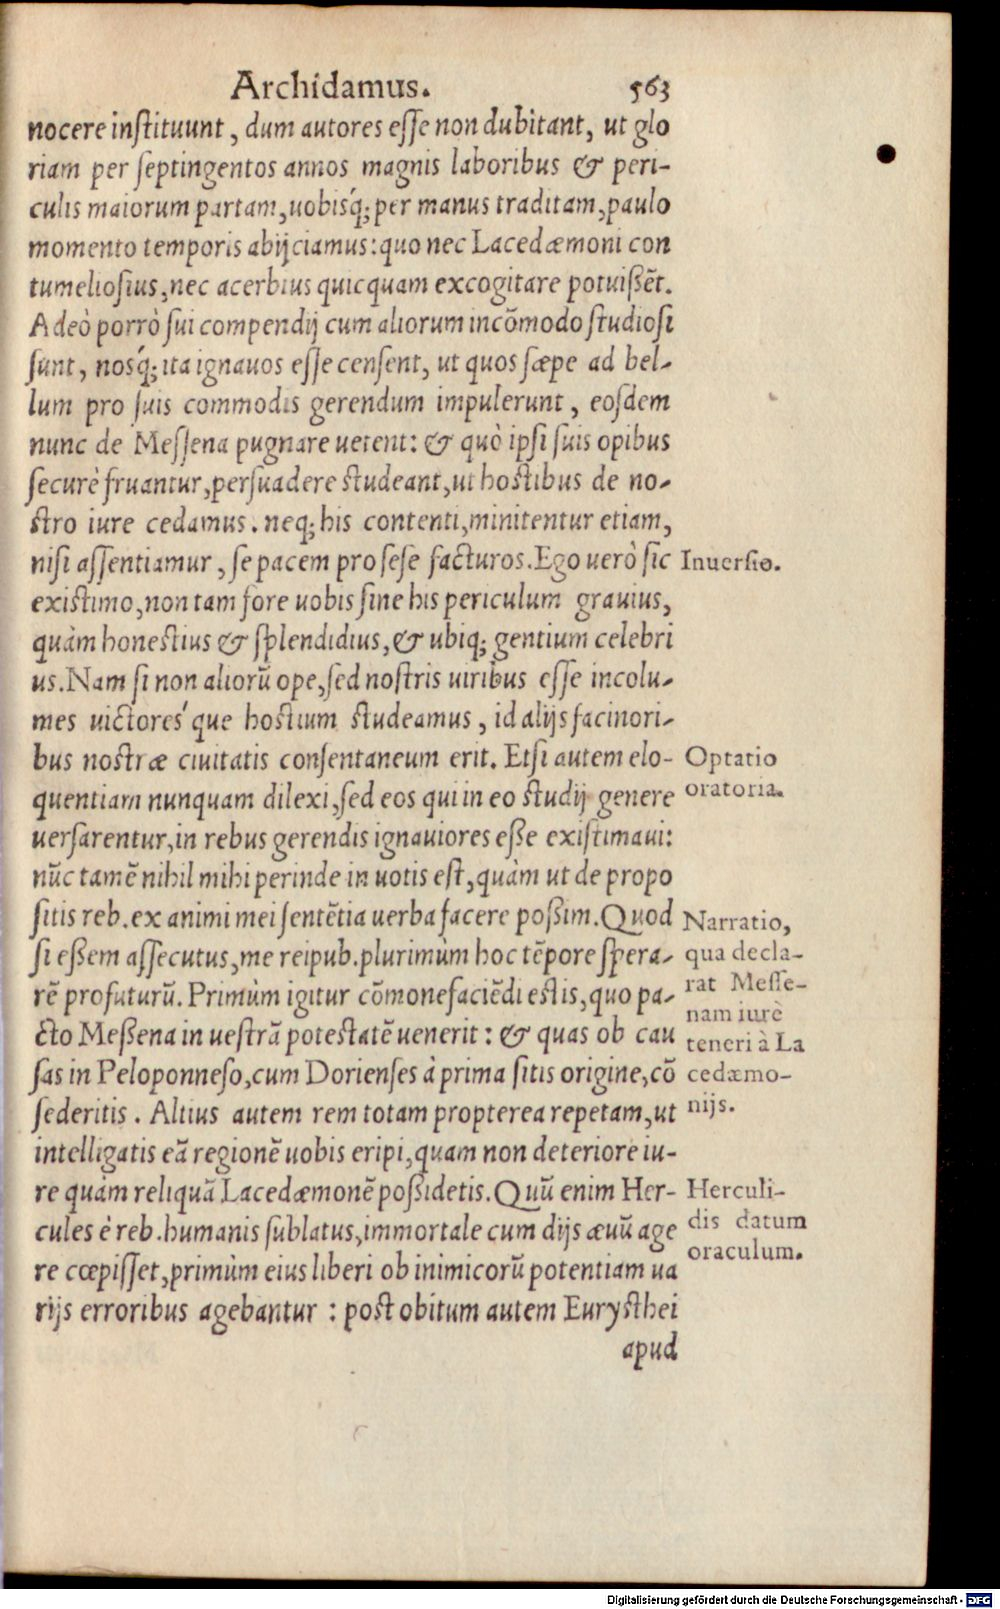 Archidamus. 563
nocere instituunt, dum autores esse non dubitant, ut glo
riam per septingentos annos magnis laboribus & peri-
culis maiorum partam, uobisq́; per manus traditam, paulo
momento temporis abijciamus: quo nec Lacedæmoni con
tumeliosius, nec acerbius quicquam excogitare potuißẽt.
Adeò porrò sui compendij cum aliorum incõmodo studiosi
sunt, nosq́; ita ignauos esse censent, ut quos sæpe ad bel-
lum pro suis commodis gerendum impulerunt, eosdem
nunc de Messena pugnare uetent: & quò ipsi suis opibus
securè fruantur, persuadere studeant, ut hostibus de no-
stro iure cedamus. neq; his contenti, minitentur etiam,
nisi assentiamur, se pacem pro sese facturos. Ego uerò sic
Inuersio.
existimo, non tam fore uobis sine his periculum grauius,
quàm honestius & splendidius, & ubiq; gentium celebri
us. Nam si non aliorũ ope, sed nostris uiribus esse incolu-
mes uictores´que hostium studeamus, id alijs facinori-
bus nostræ ciuitatis consentaneum erit. Etsi autem elo-
Optatio
quentiam nunquam dilexi, sed eos qui in eo studij genere
oratoria.
uersarentur, in rebus gerendis ignauiores eße existimaui:
nũc tamẽ nihil mihi perinde in uotis est, quàm ut de propo
sitis reb. ex animi mei sentẽtia uerba facere poßim. Quod
Narratio,
si eßem assecutus, me reipub. plurimùm hoc tẽpore spera-
qua decla-
rẽ profuturũ. Primùm igitur cõmonefaciẽdi estis, quo pa-
rat Messe-
nam iurè
cto Meßena in uestrã potestatẽ uenerit: & quas ob cau
teneri à La
sas in Peloponneso, cum Dorienses à prima sitis origine, cõ
cedæmo-
sederitis. Altius autem rem totam propterea repetam, ut
nijs.
intelligatis eã regionẽ uobis eripi, quam non deteriore iu-
re quàm reliquã Lacedæmonẽ poßidetis. Quũ enim Her-
Herculi-
cules è reb. humanis sublatus, immortale cum dijs æuũ age
dis datum
oraculum.
re cœpisset, primùm eius liberi ob inimicorũ potentiam ua
rijs erroribus agebantur: post obitum autem Eurysthei
apud
Digitalisierung gefördert durch die Deutsche Forschungsgemeinschaft - DFG